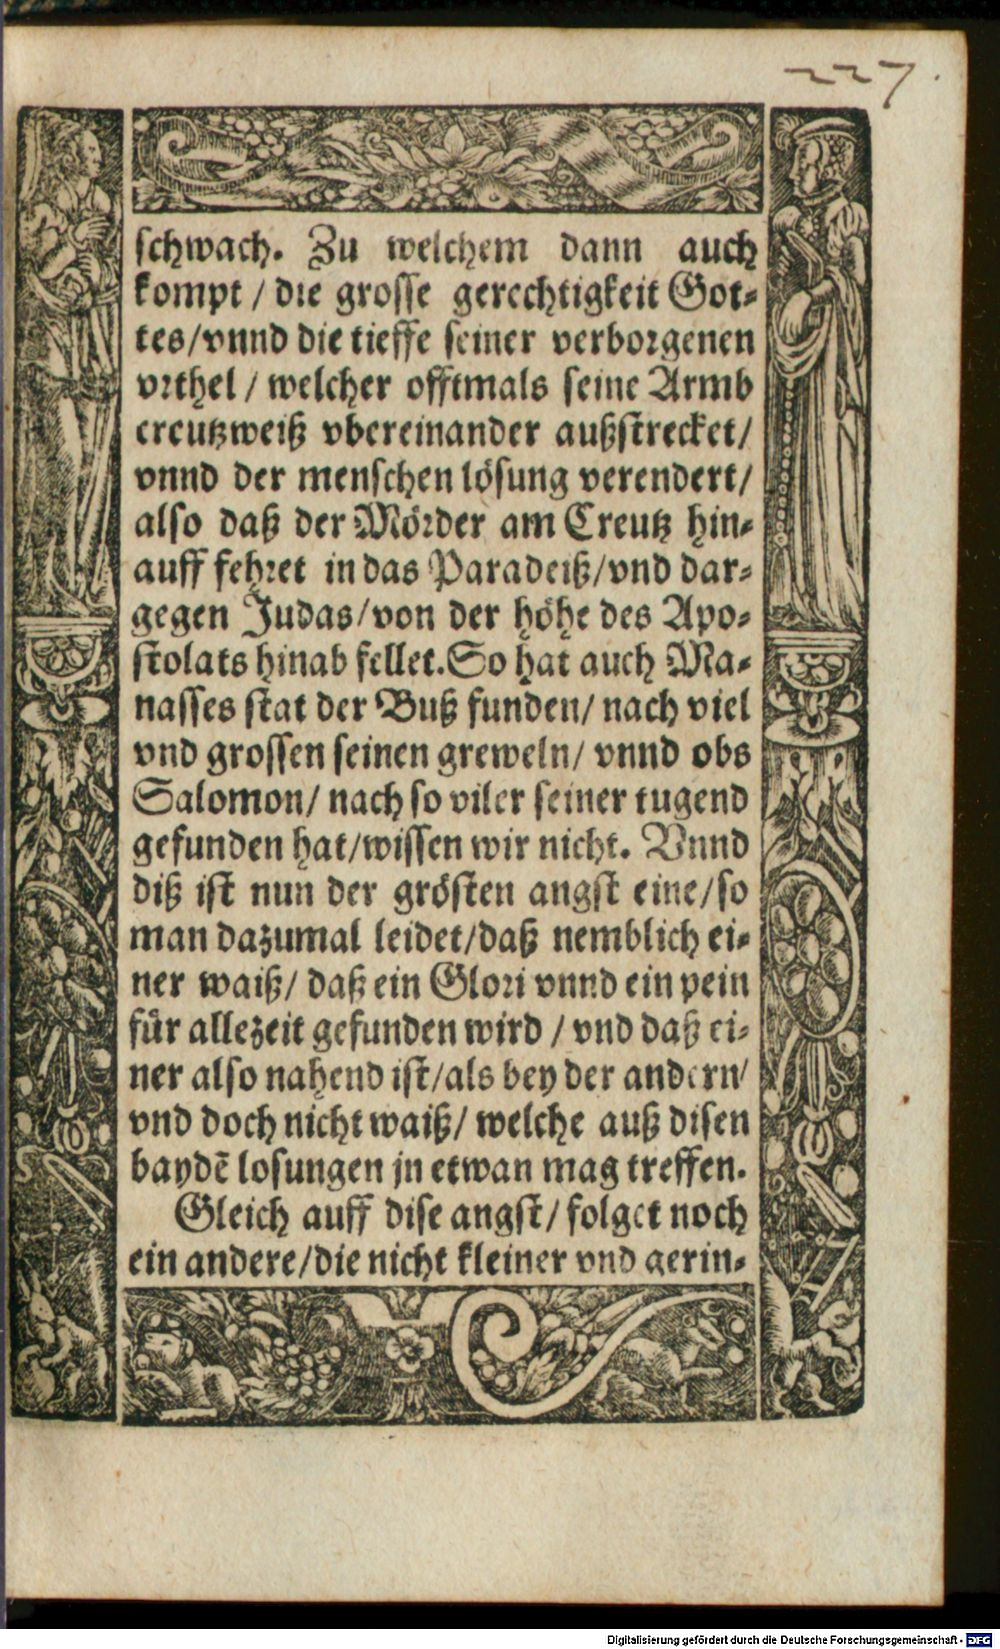 227.
schwach. Zu welchem dann auch
kompt / die grosse gerechtigkeit Got⸗
tes/vnnd die tieffe seiner verborgenen
vrthel / welcher offtmals seine Armb
creutzweiß vbereinander außstrecket/
vnnd der menschen lösung verendert/
also daß der Mörder am Creutz hin⸗
auff fehret in das Paradeiß/vnd dar⸗
gegen Judas/von der höhe des Apo⸗
stolats hinab fellet. So hat auch Ma⸗
nasses stat der Buß funden/ nach viel
vnd grossen seinen greweln/ vnnd obs
Salomon/ nach so viler seiner tugend
gefunden hat/wissen wir nicht. Vnnd
diß ist nun der grösten angst eine/so
man dazumal leidet/daß nemblich ei⸗
ner waiß/ daß ein Glori vnnd ein pein
für allezeit gefunden wird / vnd daß ei⸗
ner also nahend ist/als bey der andern/
vnd doch nicht waiß/ welche auß disen
baydē losungen jn etwan mag treffen.
Gleich auff dise angst/ folget noch
ein andere/die nicht kleiner vnd gerin⸗
Digitalisierung gefördert durch die Deutsche Forschungsgemeinschaft - DFG